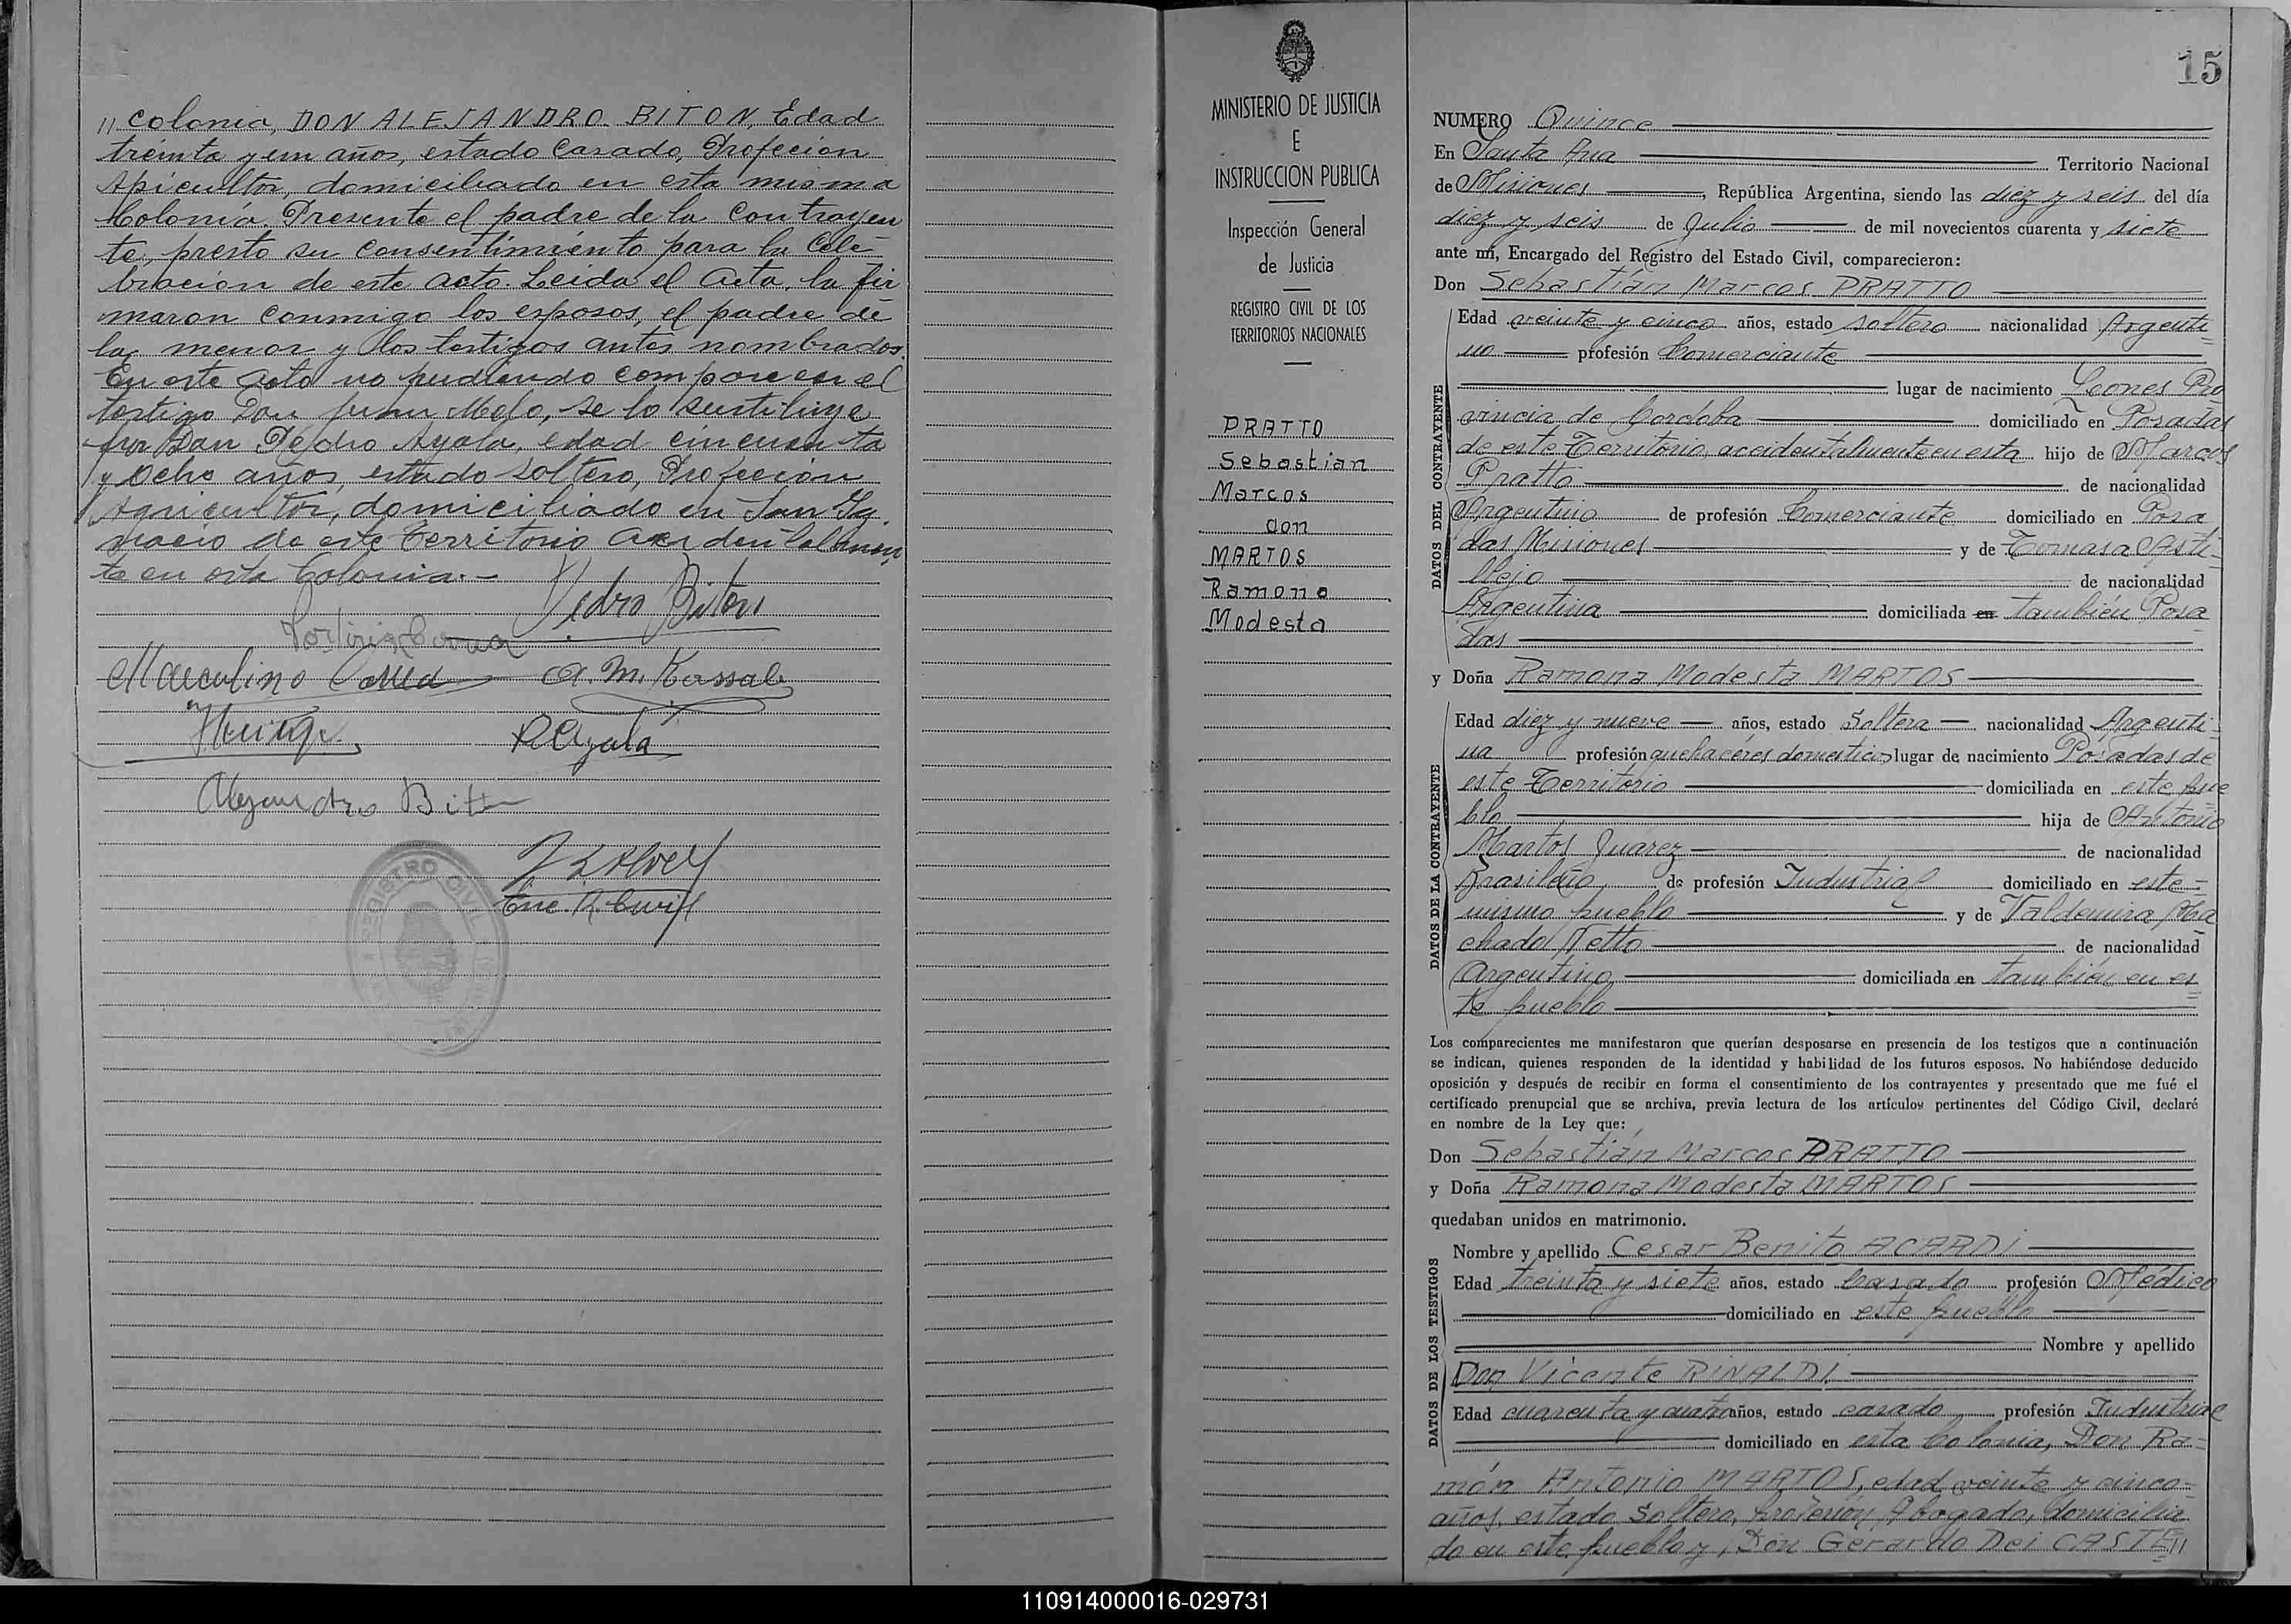 // Colonia, DON ALEJANDRO BITON, Edad
treinta y un años, estado Casado, Profeción
Apicultor, domiciliado en esta misma
Colonia. Presente el padre de la Contrayen
te, presto su Consentimiento para la Cele-
bración de este acto. Leida el Acta, la fir
maron Conmigo los esposos, el padre de
la menor y los testigos antes nombrados.
En este acto no pudiendo comparecer el
testigo Don Juan Melo, se lo sustituye
por Don Pedro Ayala, edad cincuenta
y ocho años, estado soltero, Profeción
Agricultor, domiciliado en San Ig-
nacio de este Territorio accidentalmen
te en esta Colonia.-
Pedro Biton
Marculino Correa
A. M. Kassab
P Ayala
Alejandro Bitn
REGISTRO CIVIL
15
MINISTERIO DE JUSTICIA
E
INSTRUCCION PUBLICA
Inspección General
de Justicia
REGISTRO CIVIL DE LOS
TERRITORIOS NACIONALES
PRATTO
Sebastian
Marcos
con
MARTOS
Ramona
Modesta
NUMERO Quince
En Santa Ana Territorio Nacional
de Misiones, República Argentina, siendo las diez y seis del día
diez y seis de Julio de mil novecientos cuarenta y siete
ante mí, Encargado del Registro del Estado Civil, comparecieron:
Don Sebastián Marcos PRATTO
DATOS DEL CONTRAYENTE
Edad veinte y cinco años, estado soltero nacionalidad Argenti
no profesión Comerciante
lugar de nacimiento Leones Pro
vincia de Cordoba domiciliado en Posadas
de este Territorio accidentalmente en esta hijo de Marcos
Pratto de nacionalidad
Argentino de profesión Comerciante domiciliado en Posa
das Misiones y de Tomasa Asti-
llejo de nacionalidad
Argentina domiciliada en también Posa
das
y Doña Ramona Modesta MARTOS
DATOS DE LA CONTRAYENTE
Edad diez y nueve años, estado Soltera nacionalidad Argenti-
na profesión quehacéres domesticos lugar de nacimiento Posadas de
este Territorio domiciliada en este pue
blo hija de Antonio
Martos Juárez de nacionalidad
Brasileño, de profesión Industrial domiciliado en este-
mismo pueblo y de Valdemira Ma
chado Netto de nacionalidad
Argentino domiciliada en también en es
te pueblo
Los comparecientes me manifestaron que querían desposarse en presencia de los testigos que a continuación
se indican, quienes responden de la identidad y habilidad de los futuros esposos. No habiéndose deducido
oposición y después de recibir en forma el consentimiento de los contrayentes y presentado que me fué el
certificado prenupcial que se archiva, previa lectura de los artículos pertinentes del Código Civil, declaré
en nombre de la Ley que:
Don Sebastián Marcos PRATTO
y Doña Ramona Modesta MARTOS
quedaban unidos en matrimonio.
DATOS DE LOS TESTIGOS
Nombre y apellido Cesar Benito ACARDI
Edad treinta y siete años, estado Casado profesión Médico
domiciliado en este pueblo
Nombre y apellido
Don Vicente RINALDI
Edad cuarenta y cuatro años, estado casado profesión Industrial
domiciliado en esta Colonia, Don Ra-
món Antonio MARTOS, edad veinte y cinco-
años, estado Soltero, profesion Abogado, domicilia
do en este pueblo y, Don Gerardo Dei CASTE//
110914000016-029731